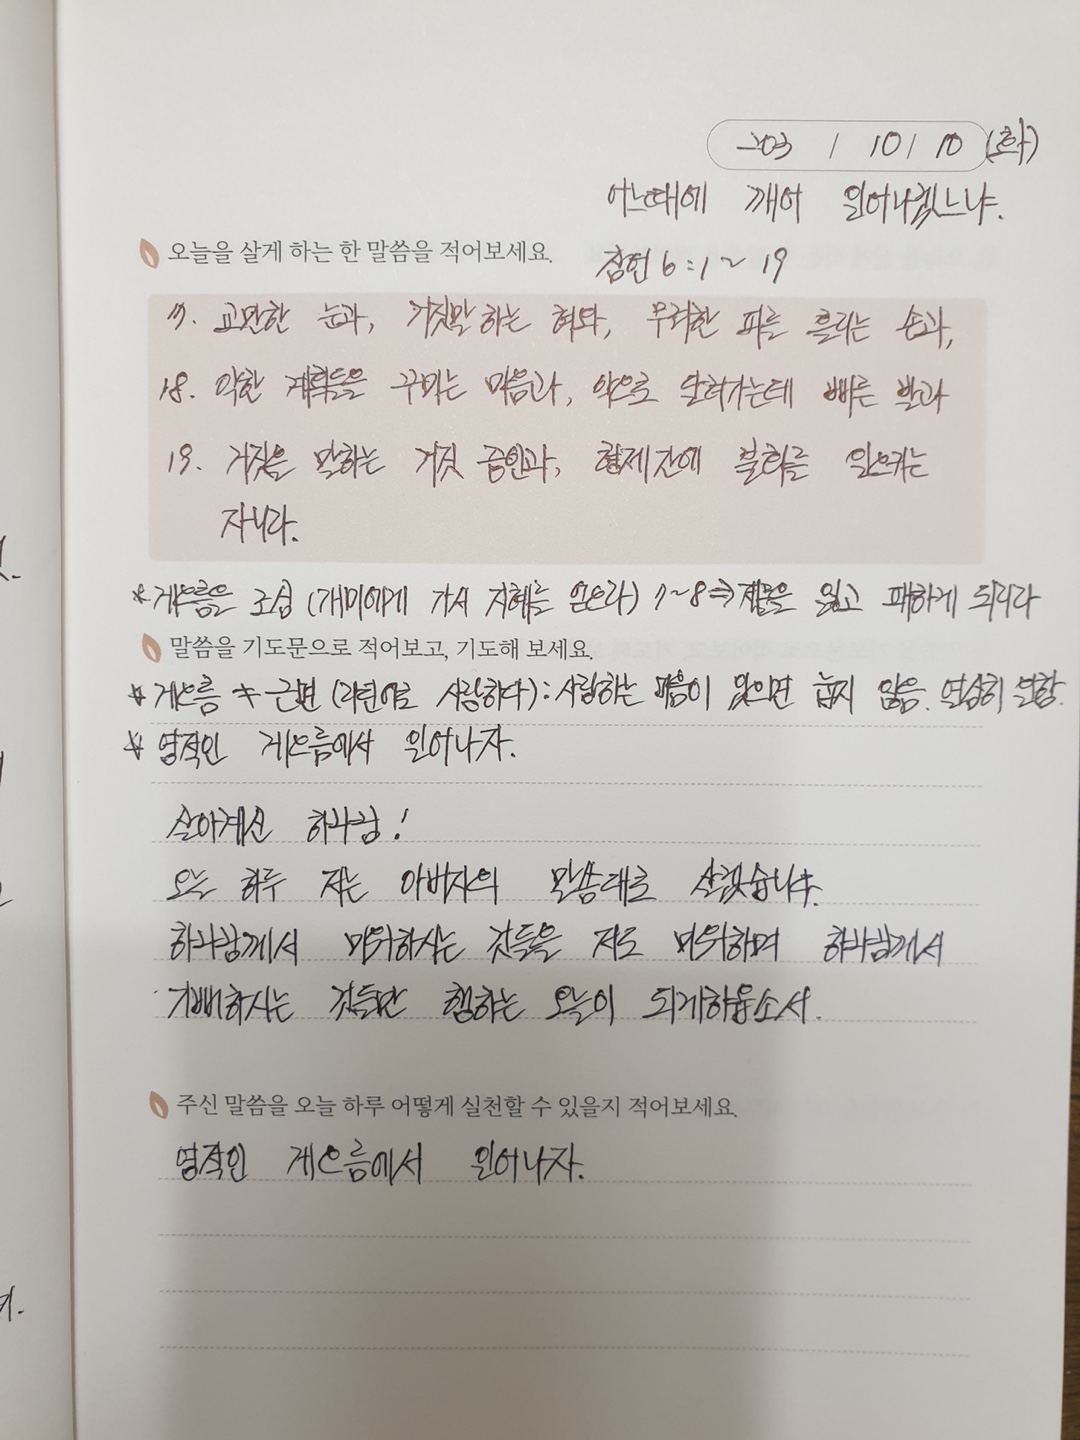 203 / 10 / 10 (화)
어느때에 깨어 일어나겠느냐.
오늘을 살게 하는 한 말씀을 적어보세요.
잠언 6:1~19
17. 교만한 눈과, 거짓말하는 혀와, 무죄한 피를 흘리는 손과,
18. 악한 계획들을 꾸미는 마음과, 악으로 달려가는데 빠른 발과
19. 거짓을 말하는 거짓 증인과, 형제간에 불화를 일으키는
자니라.
*게으름을 조심 (개미에게 가서 지혜를 얻으라) 7~8⇒재물을 잃고 패하게 되리라
말씀을 기도문으로 적어보고, 기도해 보세요.
* 게으름 ≠ 근면 (라틴어로 사랑하다):사랑하는 마음이 있으면 눕지 않음. 열심히 일함.
* 영적인 게으름에서 일어나자.
살아계신 하나님!
오늘 하루 저는 아버지의 말씀대로 살겠습니다.
하나님께서 미워하시는 것들을 저도 미워하며 하나님께서
기뻐하시는 것들만 행하는 오늘이 되게하옵소서.
주신 말씀을 오늘 하루 어떻게 실천할 수 있을지 적어보세요.
영적인 게으름에서 일어나자.